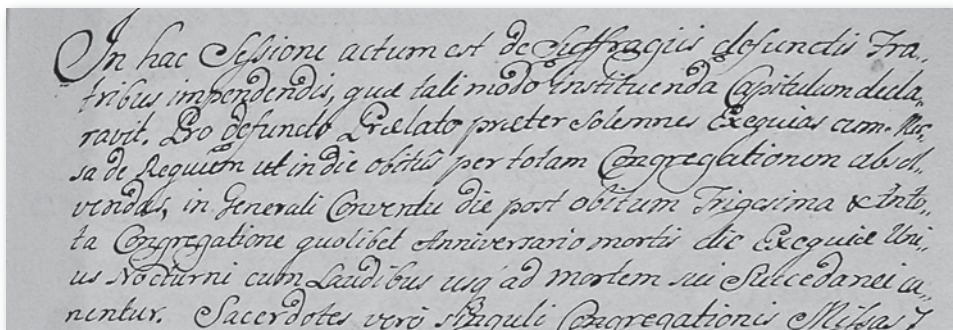 In hac Sessione actum est de Suffragiis defunctis Fra-
tribus impendendis, quæ tali modo instituenda Capitulum decla-
ravit. Pro defuncto Prælato præter Solemnes Exequias cum Mis-
sa de Requiem ut in die obitûs per totam Congregationem absol-
vendas, in Generali Conventu die post obitum Trigesima & in to-
ta Congregatione quolibet Anniversario mortis die Exequiæ Uni-
us Nocturni cum Laudibus usq ad mortem sui Succedanei ca-
nentur. Sacerdotes verò Singuli Congregationis Missas 7